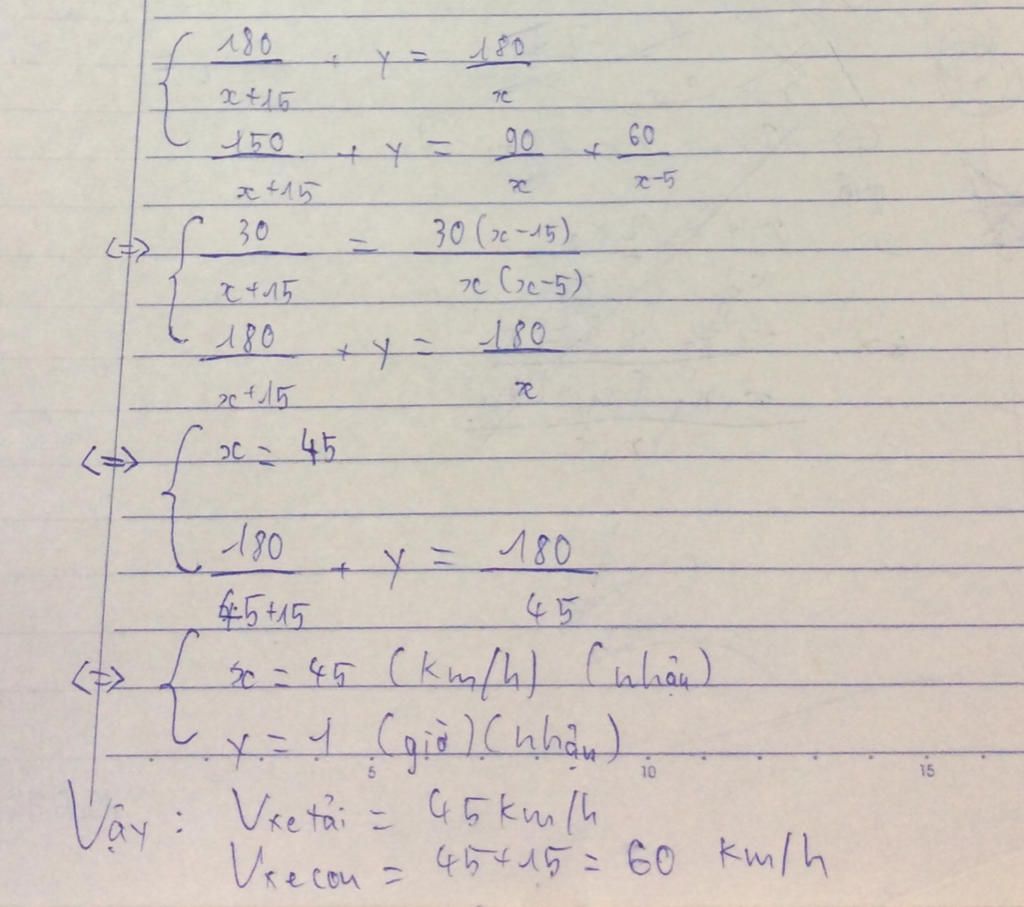 { 180/(x+15) + y = 180/x
150/(x+15) + y = 90/x + 60/(x-5)
<=> { 30/(x+15) = 30(x-15)/(x(x-5))
180/(x+15) + y = 180/x
<=> { x = 45
180/(45+15) + y = 180/45
<=> { x = 45 (km/h) (nhận)
y = 1 (giờ) (nhận)
5 10 15
Vậy : Vxe tải = 45 km/h
Vxe con = 45+15 = 60 km/h